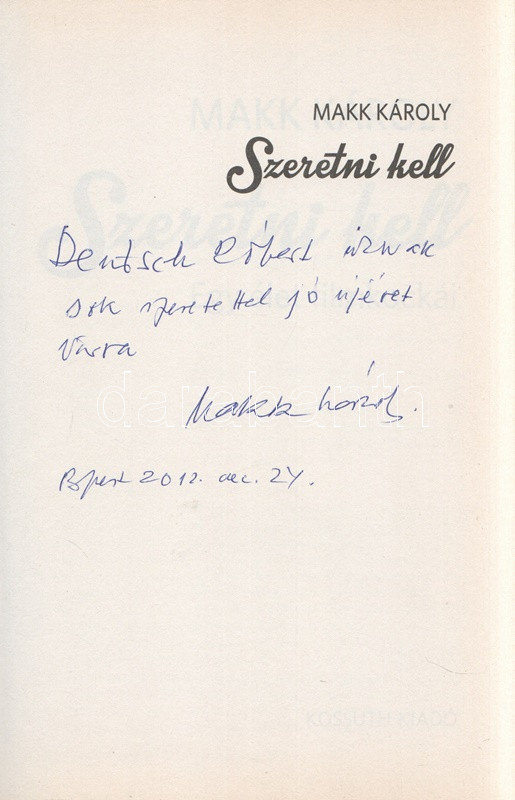 MAKK KÁROLY
Szeretni kell
Deutsch Róbert úrnak
sok szeretettel jó újévet
várva
Makk Károly.
Bpest 2012. dec. 24.
darabanth